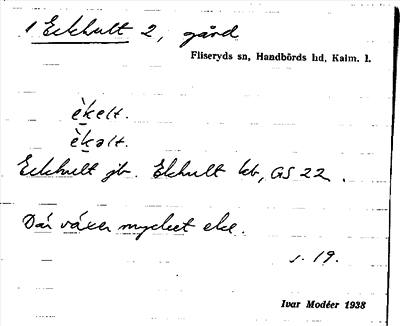 1 Eckhult 2, gård
Fliseryds sn, Handbörds hd, Kalm. l.
èkelt.
èkalt.
Eckhult jb. Ekhult kb, GS 22.
Där växer mycket ek.
s. 19.
Ivar Modéer 1938